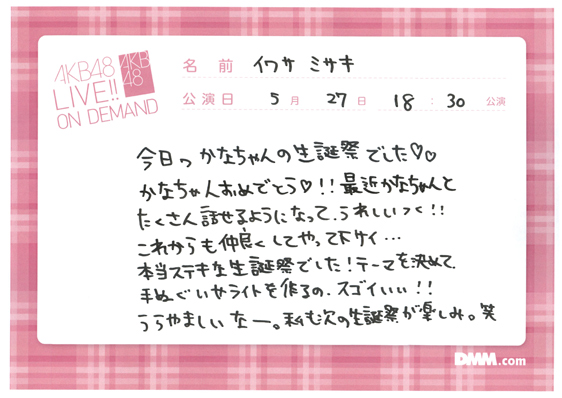 AKB48
LIVE!!
ON DEMAND
AKB
48
名前 イワサ ミサキ
公演日 5月 27日 18:30 公演
今日っかなちゃんの生誕祭でした♡♡
かなちゃんおめでとう♡!!最近かなちゃんと
たくさん話せるようになって、うれしいっく!!
これからも仲良くしてやって下サイ…
本当ステキな生誕祭でした!テーマを決めて
手ぬぐいやライトを作るの、スゴイいい!!
うらやましいなー。私も次の生誕祭が楽しみ。笑
DMM.com